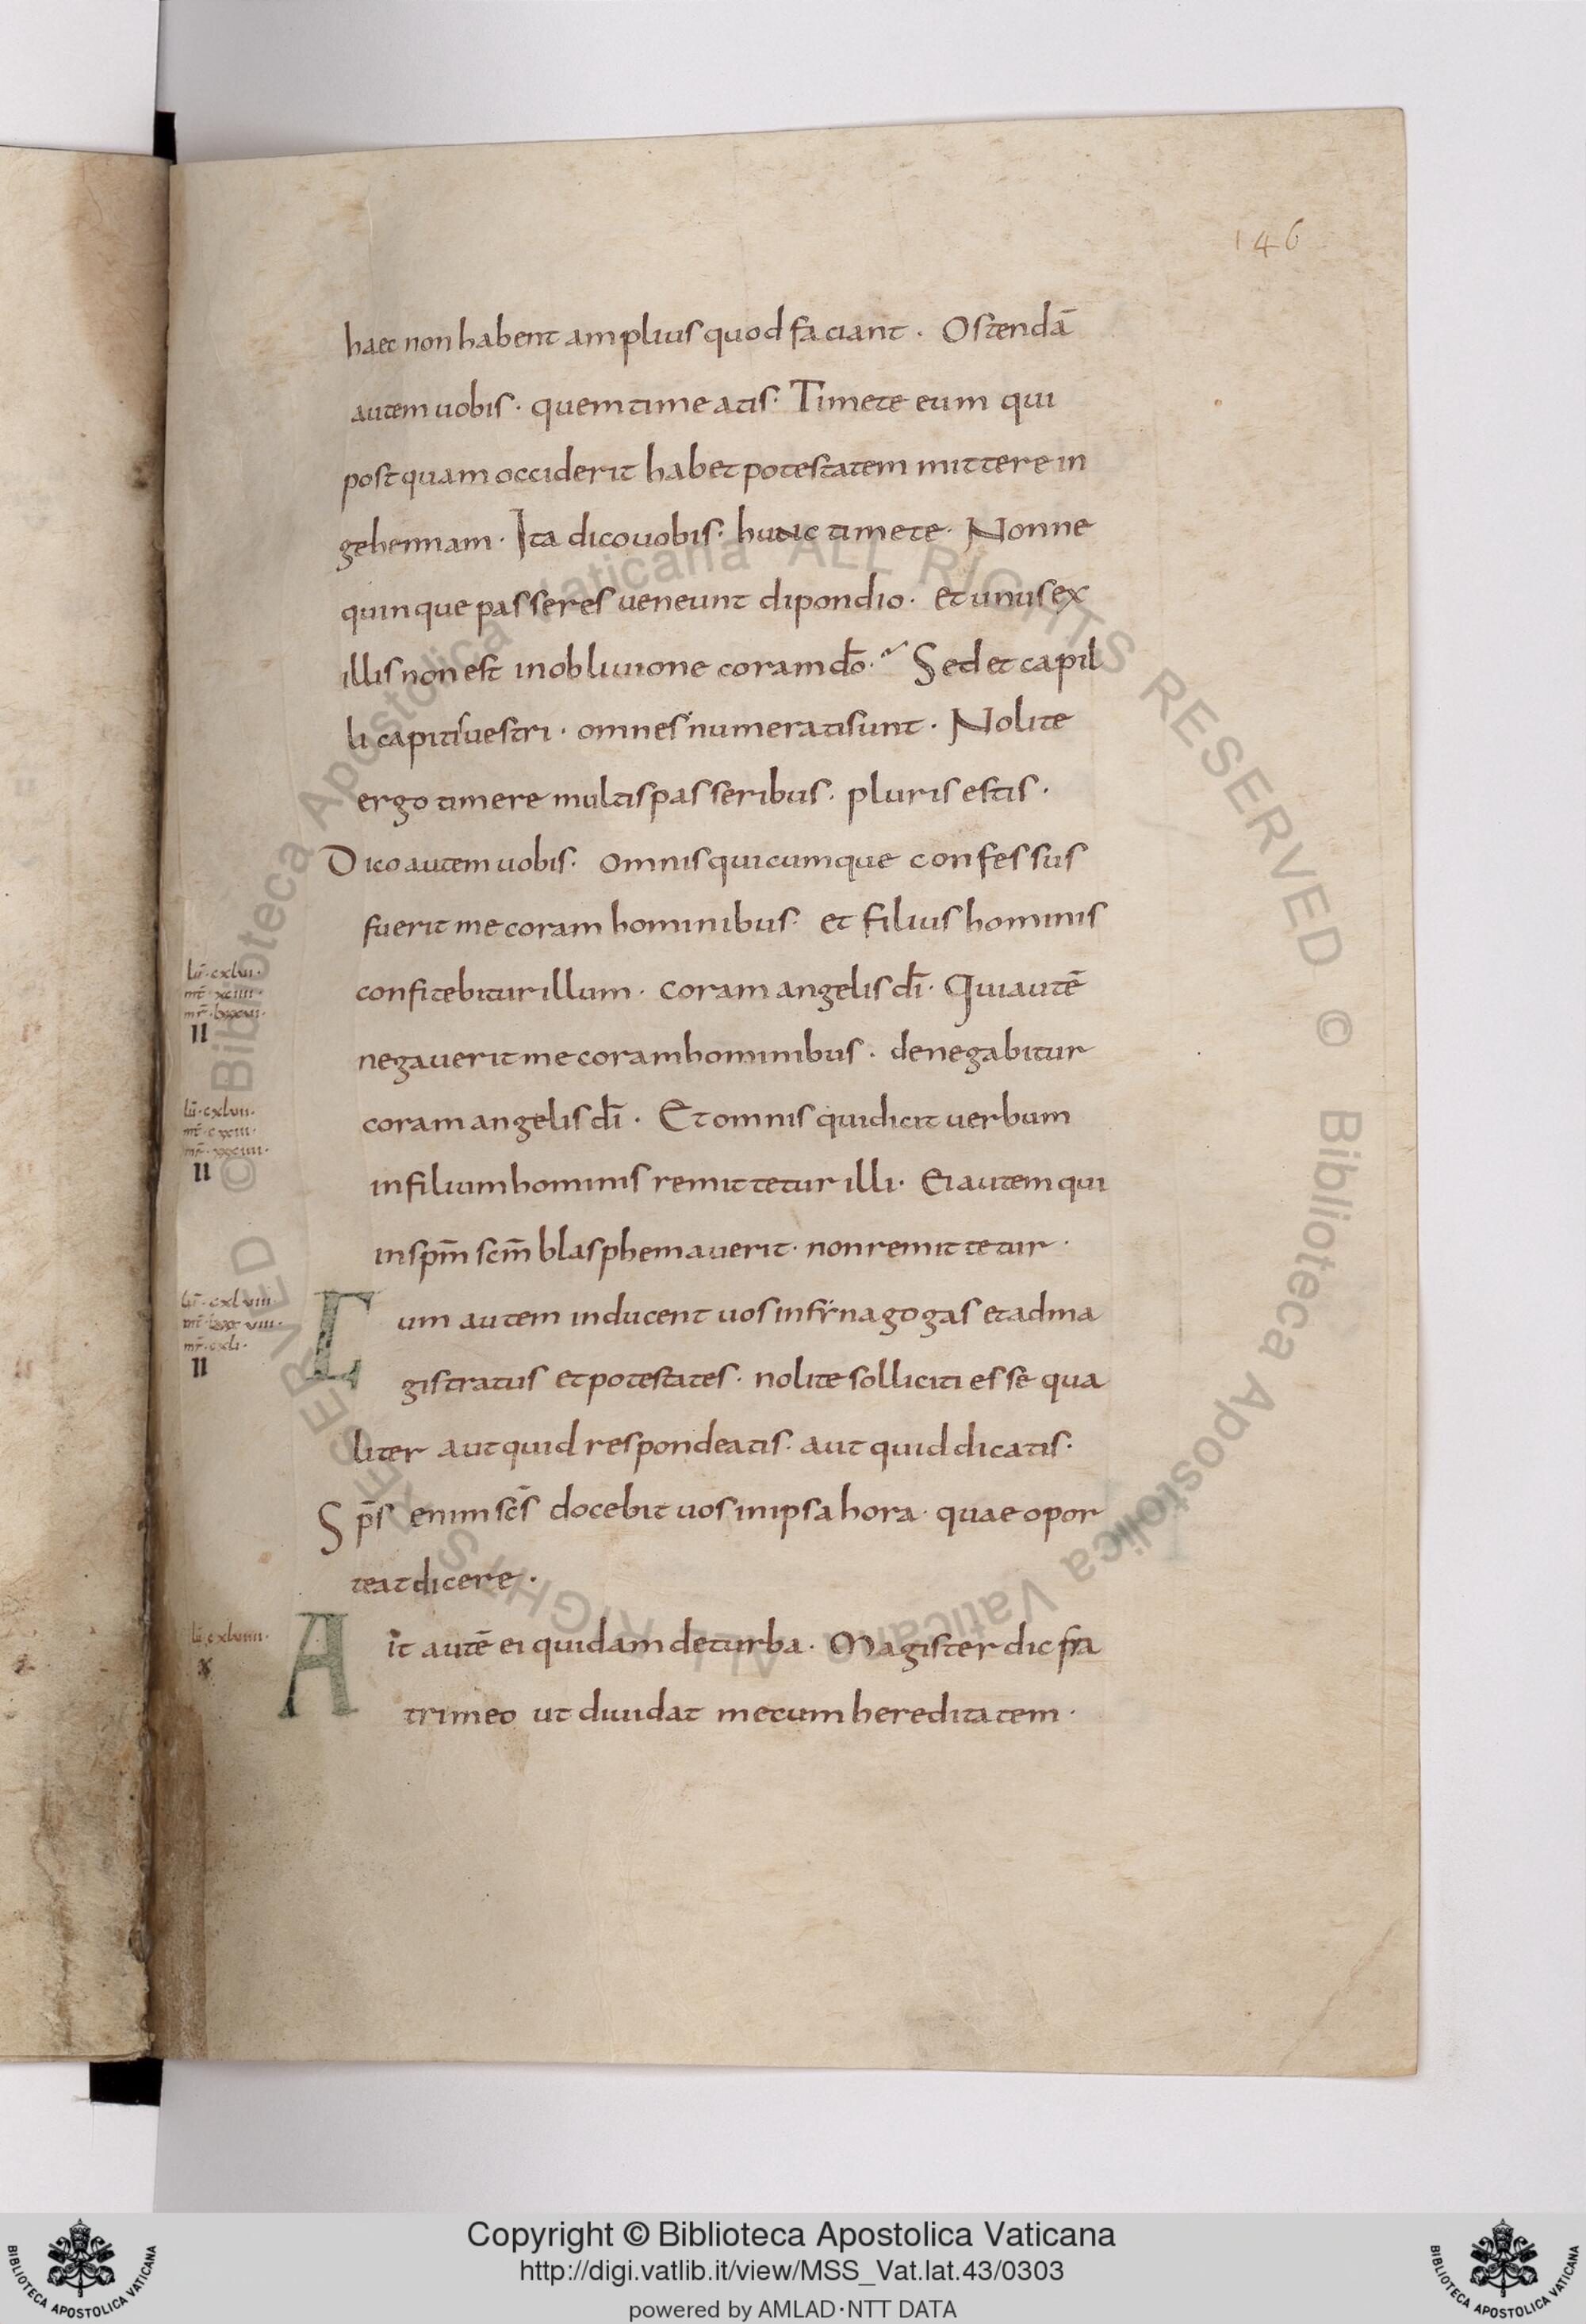 146
haec non habent amplius quod faciant · Ostendā
autem uobis · quem timeatis · Timete eum qui
postquam occiderit habet potestatem mittere in
gehennam · Ita dico uobis · hunc timete · Nonne
quinque passeres ueneunt dipondio · et unus ex
illis non est in obliuione coram dō · Sed et capil
li capitis uestri · omnes numerati sunt · Nolite
ergo timere multis passeribus · pluris estis ·
Dico autem uobis · omnis quicumque confessus
fuerit me coram hominibus · et filius hominis
confitebitur illum · coram angelis dī · Qui autē
negauerit me coram hominibus · denegabitur
coram angelis dī · Et omnis qui dicit uerbum
in filium hominis remittetur illi · Ei autem qui
in spm̄ scm̄ blasphemauerit · non remittetur ·
Cum autem inducent uos in synagogas et ad ma
gistratus et potestates · nolite solliciti esse qua
liter aut quid respondeatis · aut quid dicatis ·
Sp̄s enim sc̄s docebit uos in ipsa hora · quae opor
teat dicere ·
Ait autē ei quidam de turba · Magister dic fra
tri meo ut diuidat mecum hereditatem ·
II
II
II
x
© Biblioteca Apostolica Vaticana ALL RIGHTS RESERVED © Biblioteca Apostolica Vaticana ALL RIGHTS RESERVED
Copyright © Biblioteca Apostolica Vaticana
http://digi.vatlib.it/view/MSS_Vat.lat.43/0303
powered by AMLAD·NTT DATA
BIBLIOTECA APOSTOLICA VATICANA
BIBLIOTECA APOSTOLICA VATICANA